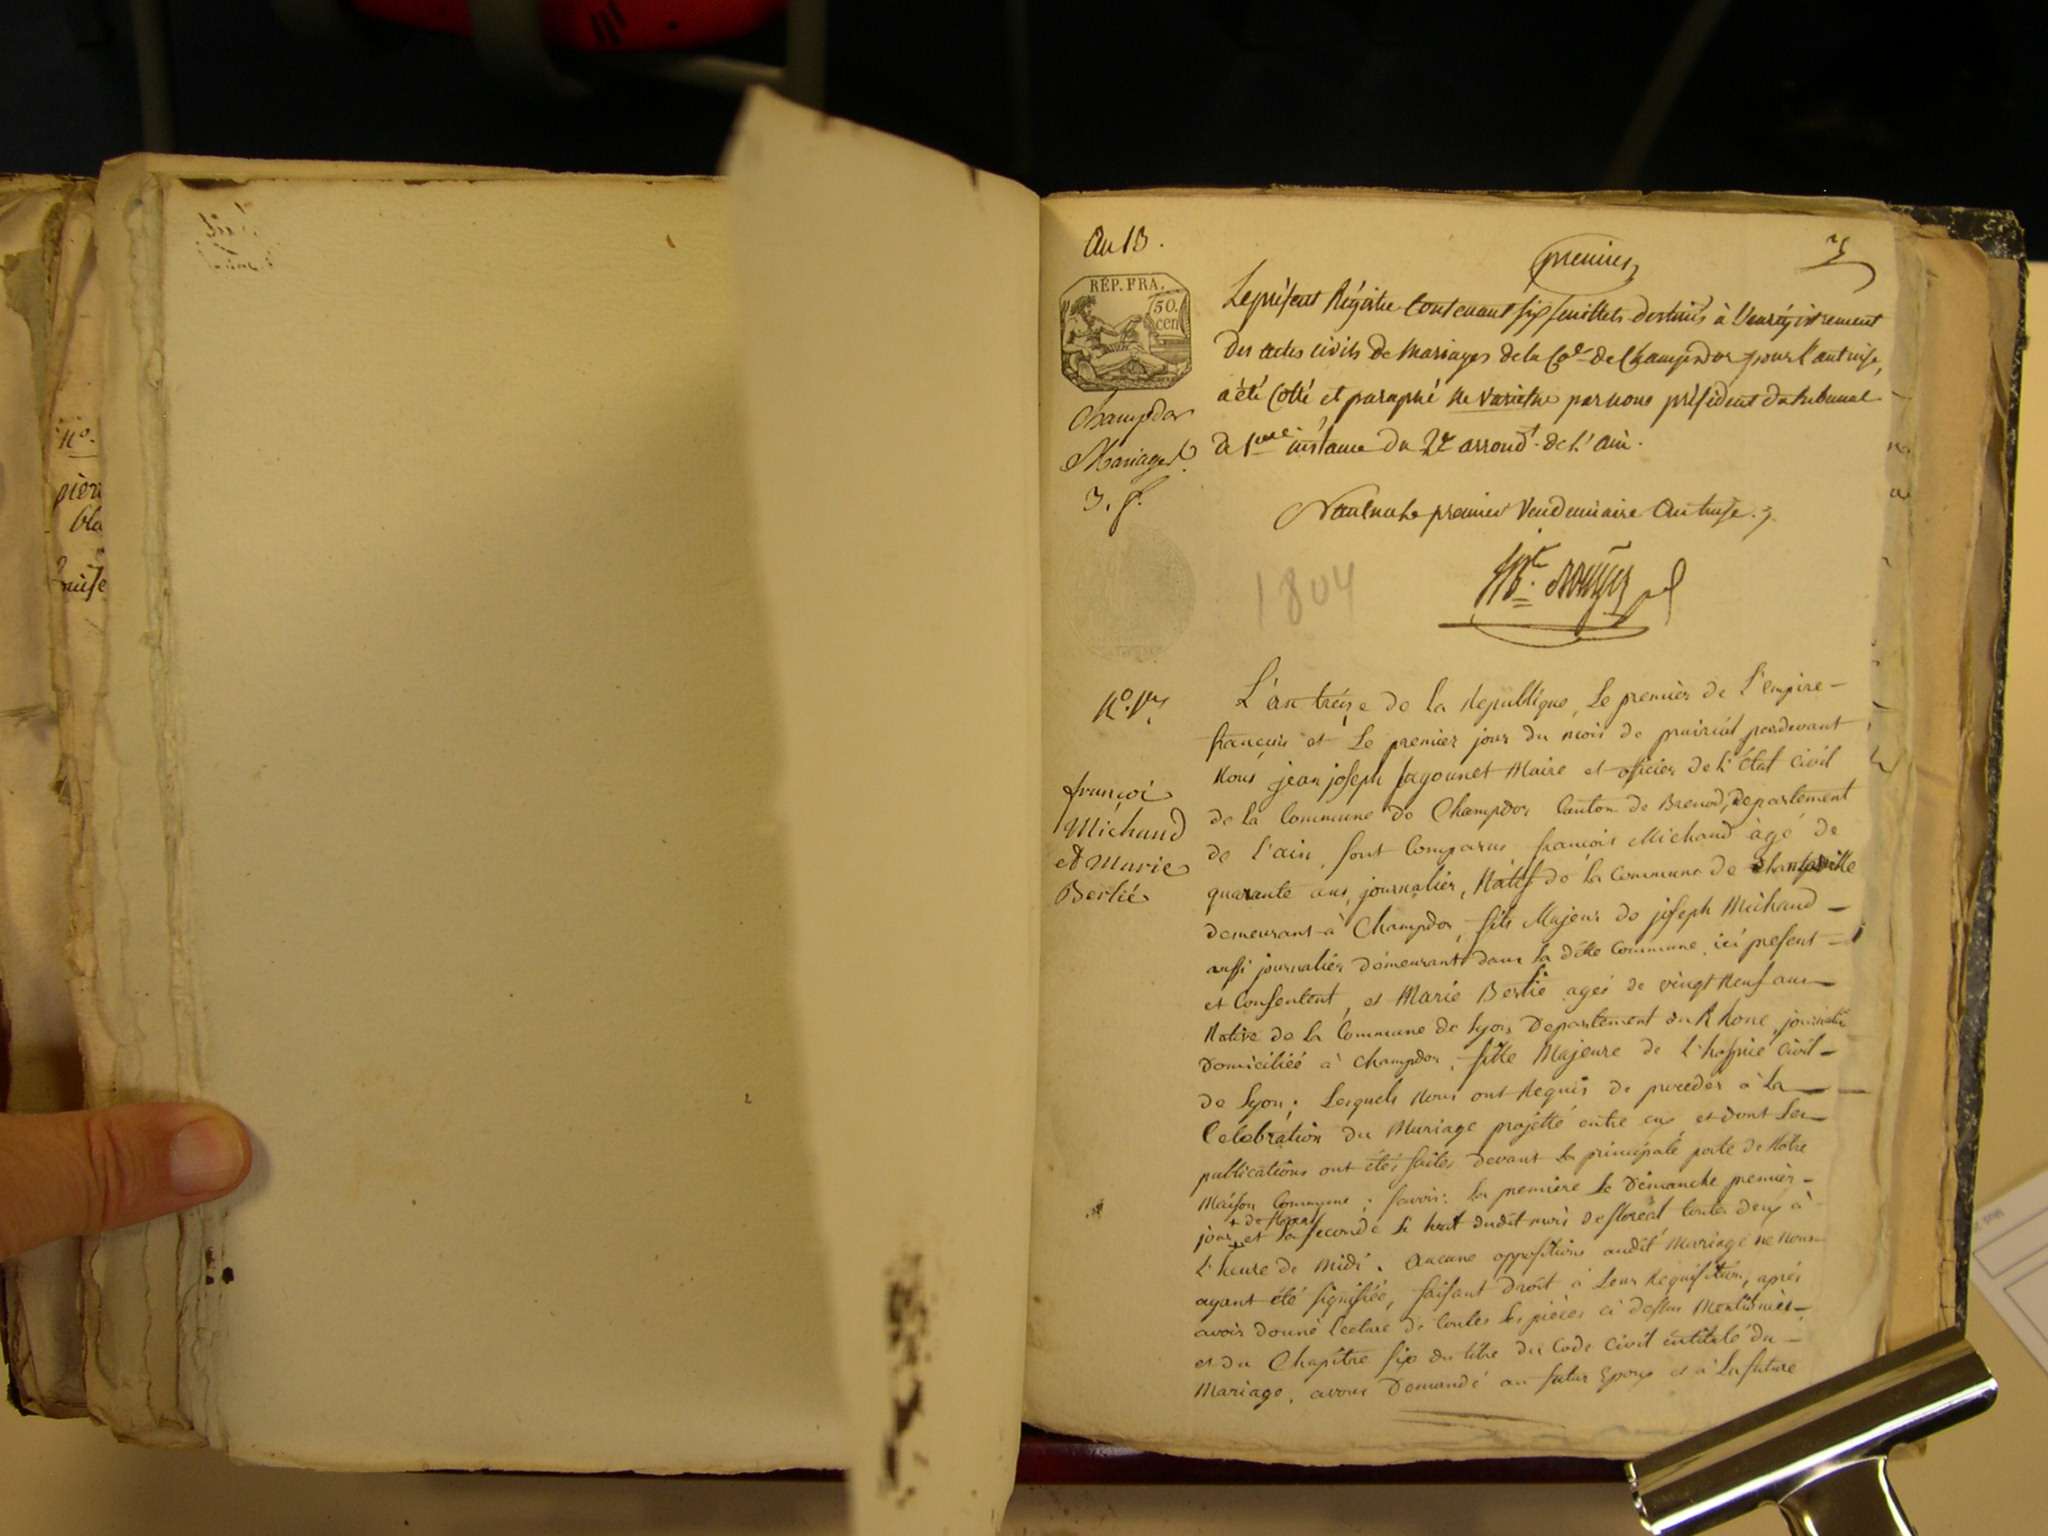 An 13.
premier
RÉP. FRA.
50.
cen
Champdor
Mariages
3. f.
Le présent Régistre contenant six feuillets destinés à l'enrégistrement
des actes civils de mariages de la Co.e de Champdor pour l'an treise,
a été Cotté et paraphé Ne Varietur par nous président du tribunal
de 1.ere instance du 2.e arrond.t de l'ain.
Nantua le premier Vendemiaire An treise.
1804
N.o 1.er
françois
Michaud
et Marie
Berlié
L'an treize de la Republique, Le premier de L'empire
françois et Le premier jour du mois de prairial pardevant
Nous jean joseph Maire et officier de L'état Civil
de la Commune de Champdor Canton de Brenod, departement
de L'ain, sont Comparus françois Michaud agé de
quarante ans, journalier, Natif de la Commune de
demeurant à Champdor, fils Majeur de joseph Michaud
aussi journalier demeurant dans la ditte Commune, ici present
et Consentent, et Marie Berlié agée de vingt Neuf ans
Native de La Commune de Lyon Departement du Rhone,
Domiciliée à Champdor, fille Majeure de L'hospice Civil
de Lyon; Lesquels Nous ont Requis de proceder à La
Celebration du Mariage projetté entre eux, et dont Les
publications ont étés faites devant la principale porte de Notre
Maison Commune; savoir: la premiere Le Dimanche premier
+ de floreal
jour et la seconde le huit dudit mois de floréal toutes deux à
L'heure de Midi. Aucune oppositions audit Mariage ne Nous
ayant été signifiée, faisant droit à Leur Requisition, aprés
avoir donné Lecture de toutes les pièces ci dessus Mentionnées
et du Chapitre six du titre du Code Civil intitulé du
Mariage, avons Demandé au futur Epoux et à La future
N.o